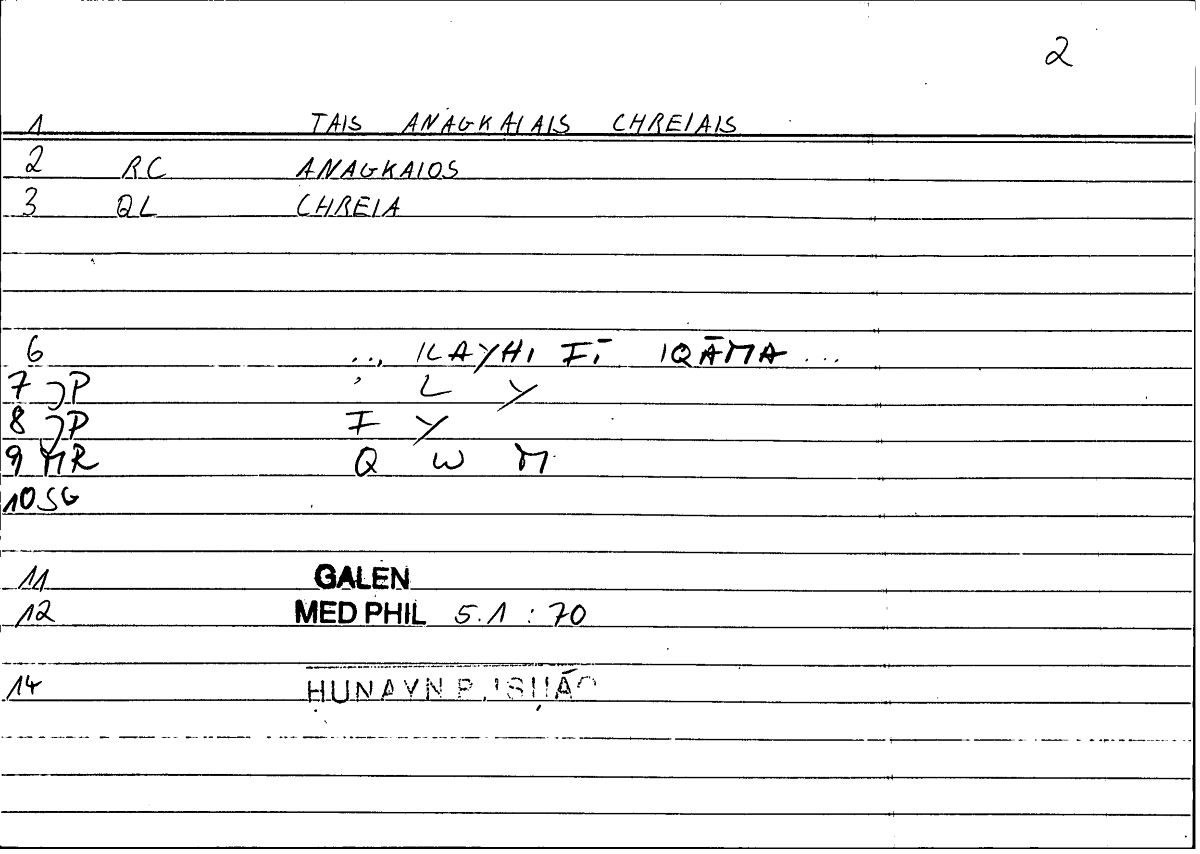 2
1 TAIS ANAGKAIAIS CHREIAIS
2 RC ANAGKAIOS
3 QL CHREIA
6 ... ILAYHI FĪ IQĀMA ...
7 JP ' L Y
8 JP F Y
9 MR Q W M
10 SG
11 GALEN
12 MED PHIL 5.1 : 70
14 ḤUNAYN B. ISḤĀQ